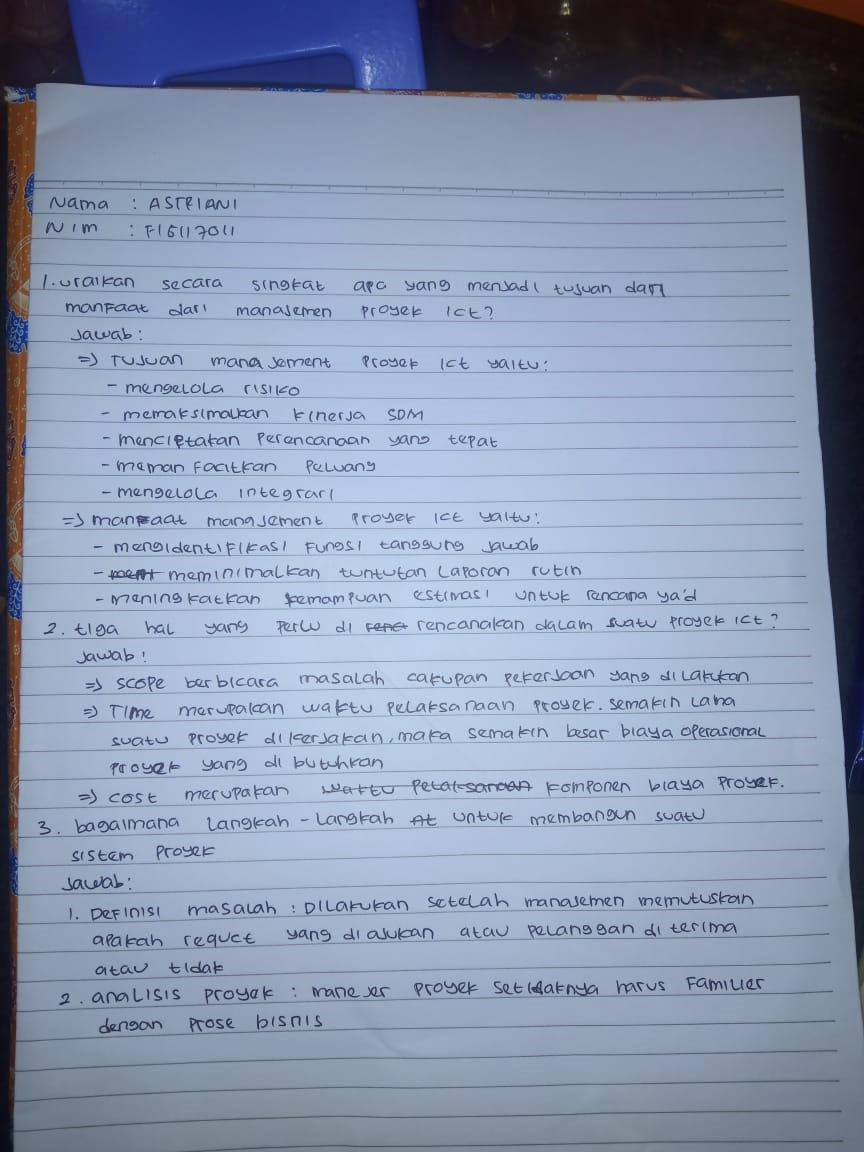 Nama : ASTRIANI
Nim : F16117011
1. uraikan secara singkat apa yang menjadi tujuan dan
manfaat dari manajemen proyek ict?
Jawab :
=> Tujuan manajement proyek ict yaitu :
- mengelola risiko
- memaksimalkan kinerja SDM
- menciptakan perencanaan yang tepat
- memanfaatkan peluang
- mengelola integrari
=> manfaat manajement proyek ict yaitu :
- mengidentifikasi fungsi tanggung jawab
- meminimalkan tuntutan laporan rutin
- meningkatkan kemampuan estimasi untuk rencana ya'd
2. tiga hal yang perlu di rencanakan dalam suatu proyek ict ?
Jawab !
=> scope berbicara masalah cakupan pekerjaan yang dilakukan
=> Time merupakan waktu pelaksanaan proyek. semakin lama
suatu proyek dikerjakan, maka semakin besar biaya operasional
proyek yang di butuhkan
=> cost merupakan waktu pelaksanaan komponen biaya proyek.
3. bagaimana langkah - langkah untuk membangun suatu
sistem proyek
Jawab :
1. Definisi masalah : Dilakukan setelah manajemen memutuskan
apakah requet yang diajukan atau pelanggan di terima
atau tidak
2. analisis proyek : manejer proyek setidaknya harus familier
dengan prose bisnis